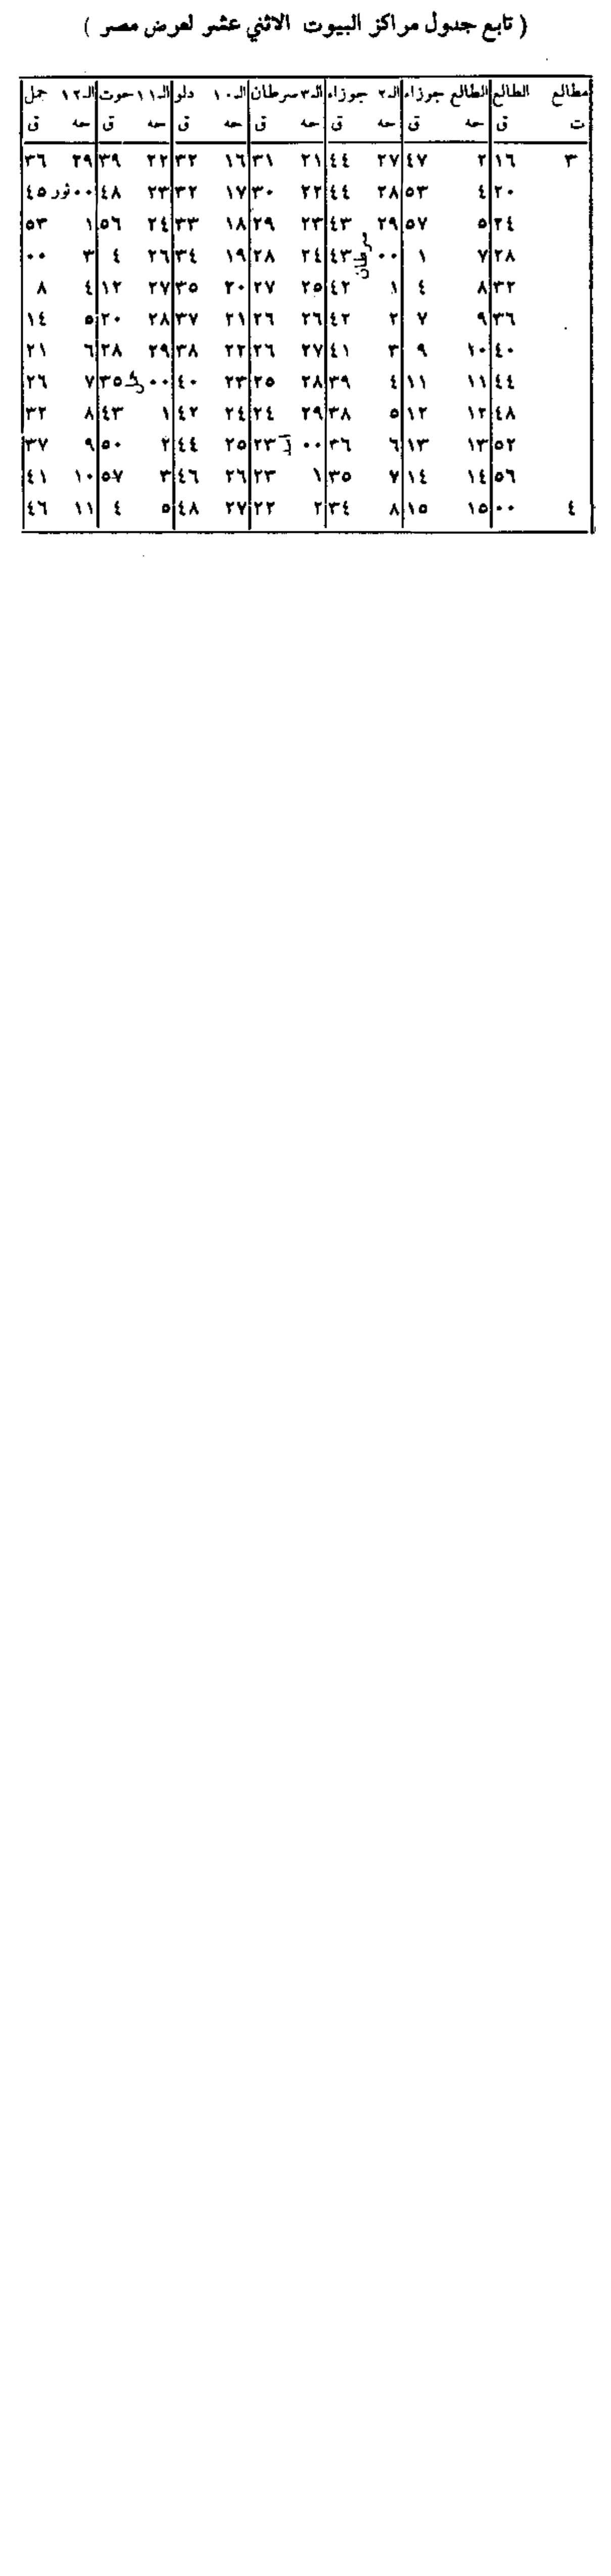 ( تابع جدول مراكز البيوت الاثني عشر لعرض مصر )
مطالع الطالع الطالع جوزاء الـ٢ جوزاء الـ٣ سرطان الـ١٠ دلو الـ١١ حوت الـ١٢ حمل
ت ق حه ق حه ق حه ق حه ق حه ق حه ق
٣ ١٦ ٢ ٤٧ ٢٧ ٤٤ ٢١ ٣١ ١٦ ٣٢ ٢٢ ٣٩ ٢٩ ٣٦
٢٠ ٤ ٥٣ ٢٨ ٤٤ ٢٢ ٣٠ ١٧ ٣٢ ٢٣ ٤٨ ٠٠ ثور ٤٥
٢٤ ٥ ٥٧ ٢٩ ٤٣ ٢٣ ٢٩ ١٨ ٣٣ ٢٤ ٥٦ ١ ٥٣
٢٨ ٧ ١ ٠٠ سرطان ٤٣ ٢٤ ٢٨ ١٩ ٣٤ ٢٦ ٤ ٣ ٠٠
٣٢ ٨ ٤ ١ ٤٢ ٢٥ ٢٧ ٢٠ ٣٥ ٢٧ ١٢ ٤ ٨
٣٦ ٩ ٧ ٢ ٤٢ ٢٦ ٢٦ ٢١ ٣٧ ٢٨ ٢٠ ٥ ١٤
٤٠ ١٠ ٩ ٣ ٤١ ٢٧ ٢٦ ٢٢ ٣٨ ٢٩ ٢٨ ٦ ٢١
٤٤ ١١ ١١ ٤ ٣٩ ٢٨ ٢٥ ٢٣ ٤٠ ٠٠ ٣٥ ٧ ٢٦
٤٨ ١٢ ١٢ ٥ ٣٨ ٢٩ ٢٤ ٢٤ ٤٢ ١ ٤٣ ٨ ٣٢
٥٢ ١٣ ١٣ ٦ ٣٦ ٠٠ أسد ٢٣ ٢٥ ٤٤ ٢ ٥٠ ٩ ٣٧
٥٦ ١٤ ١٤ ٧ ٣٥ ١ ٢٣ ٢٦ ٤٦ ٣ ٥٧ ١٠ ٤١
٤ ٠٠ ١٥ ١٥ ٨ ٣٤ ٢ ٢٢ ٢٧ ٤٨ ٥ ٤ ١١ ٤٦